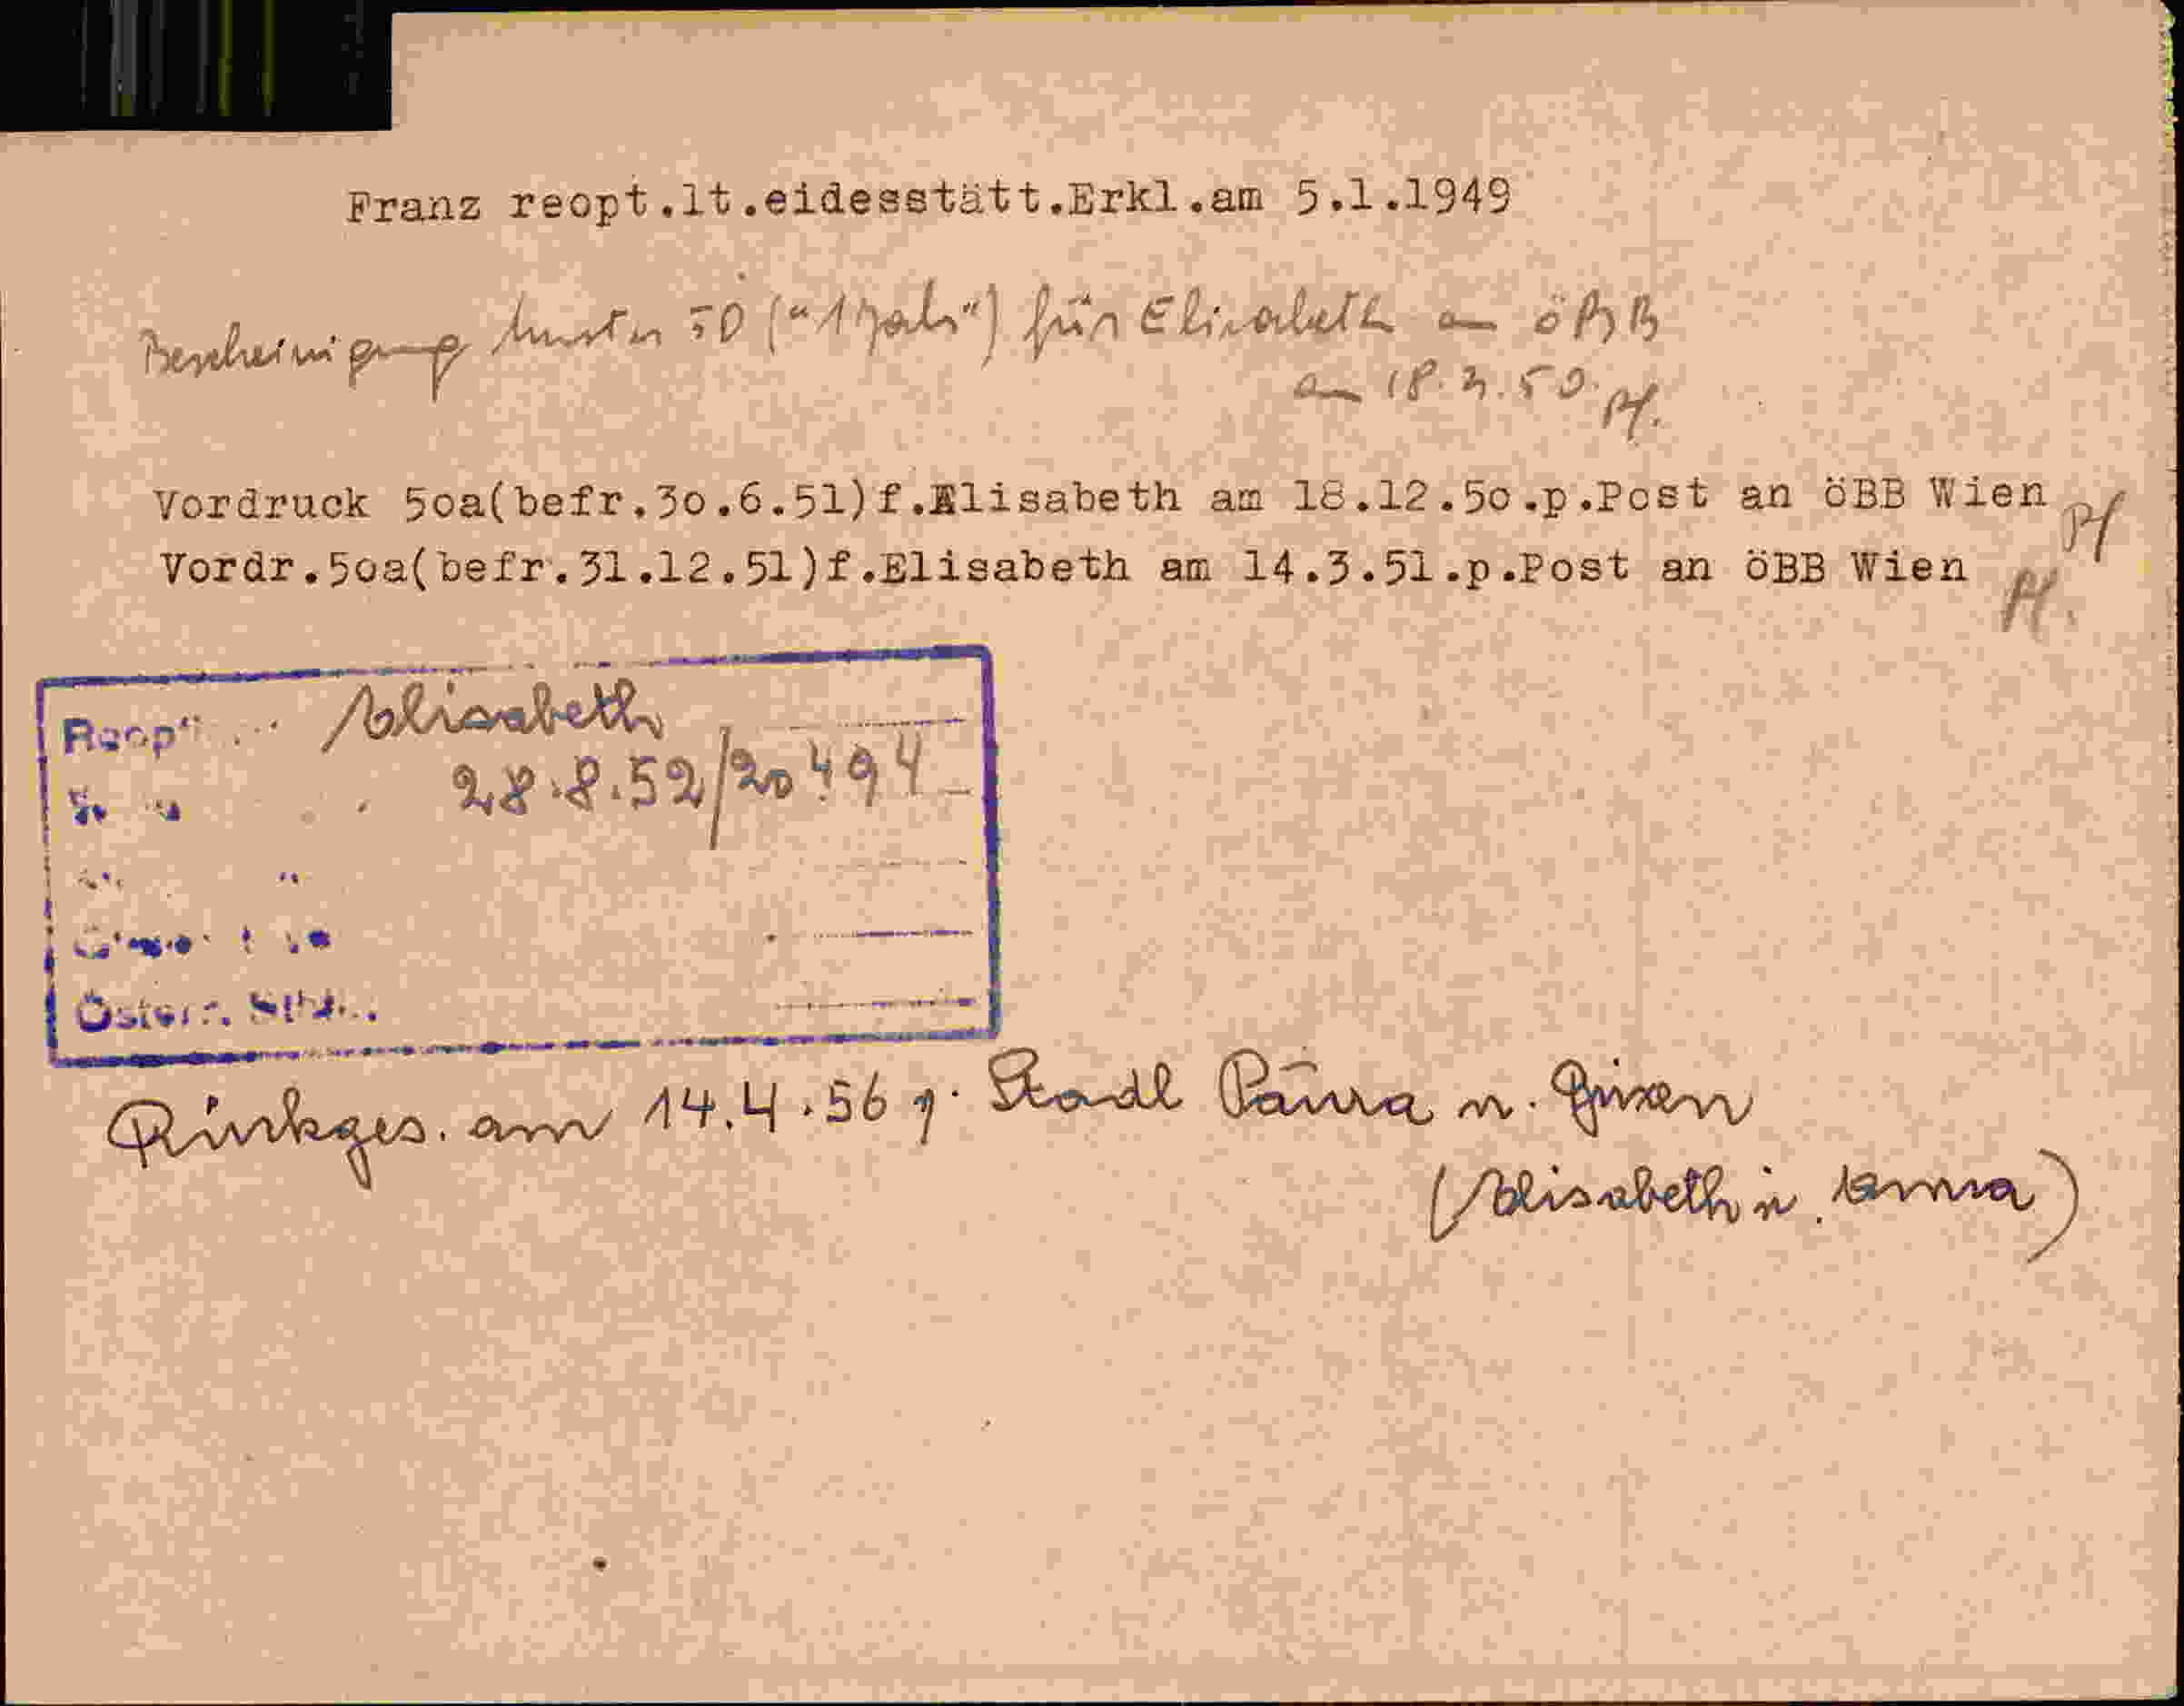 Franz reopt.lt.eidesstätt.Erkl.am 5.1.1949
Bescheinigung Muster 50 ("1 Jahr") für Elisabeth an ÖBB
am 18.3.50. Pf.
Vordruck 50a(befr.30.6.51)f.Elisabeth am 18.12.50.p.Post an öBB Wien Pf
Vordr.50a(befr.31.12.51)f.Elisabeth am 14.3.51.p.Post an öBB Wien Pf.
Elisabeth
28.8.52/20494
Österr.
Rückges. am 14.4.56 g. Stadl Paura n. Brixen
(Elisabeth u. Emma)